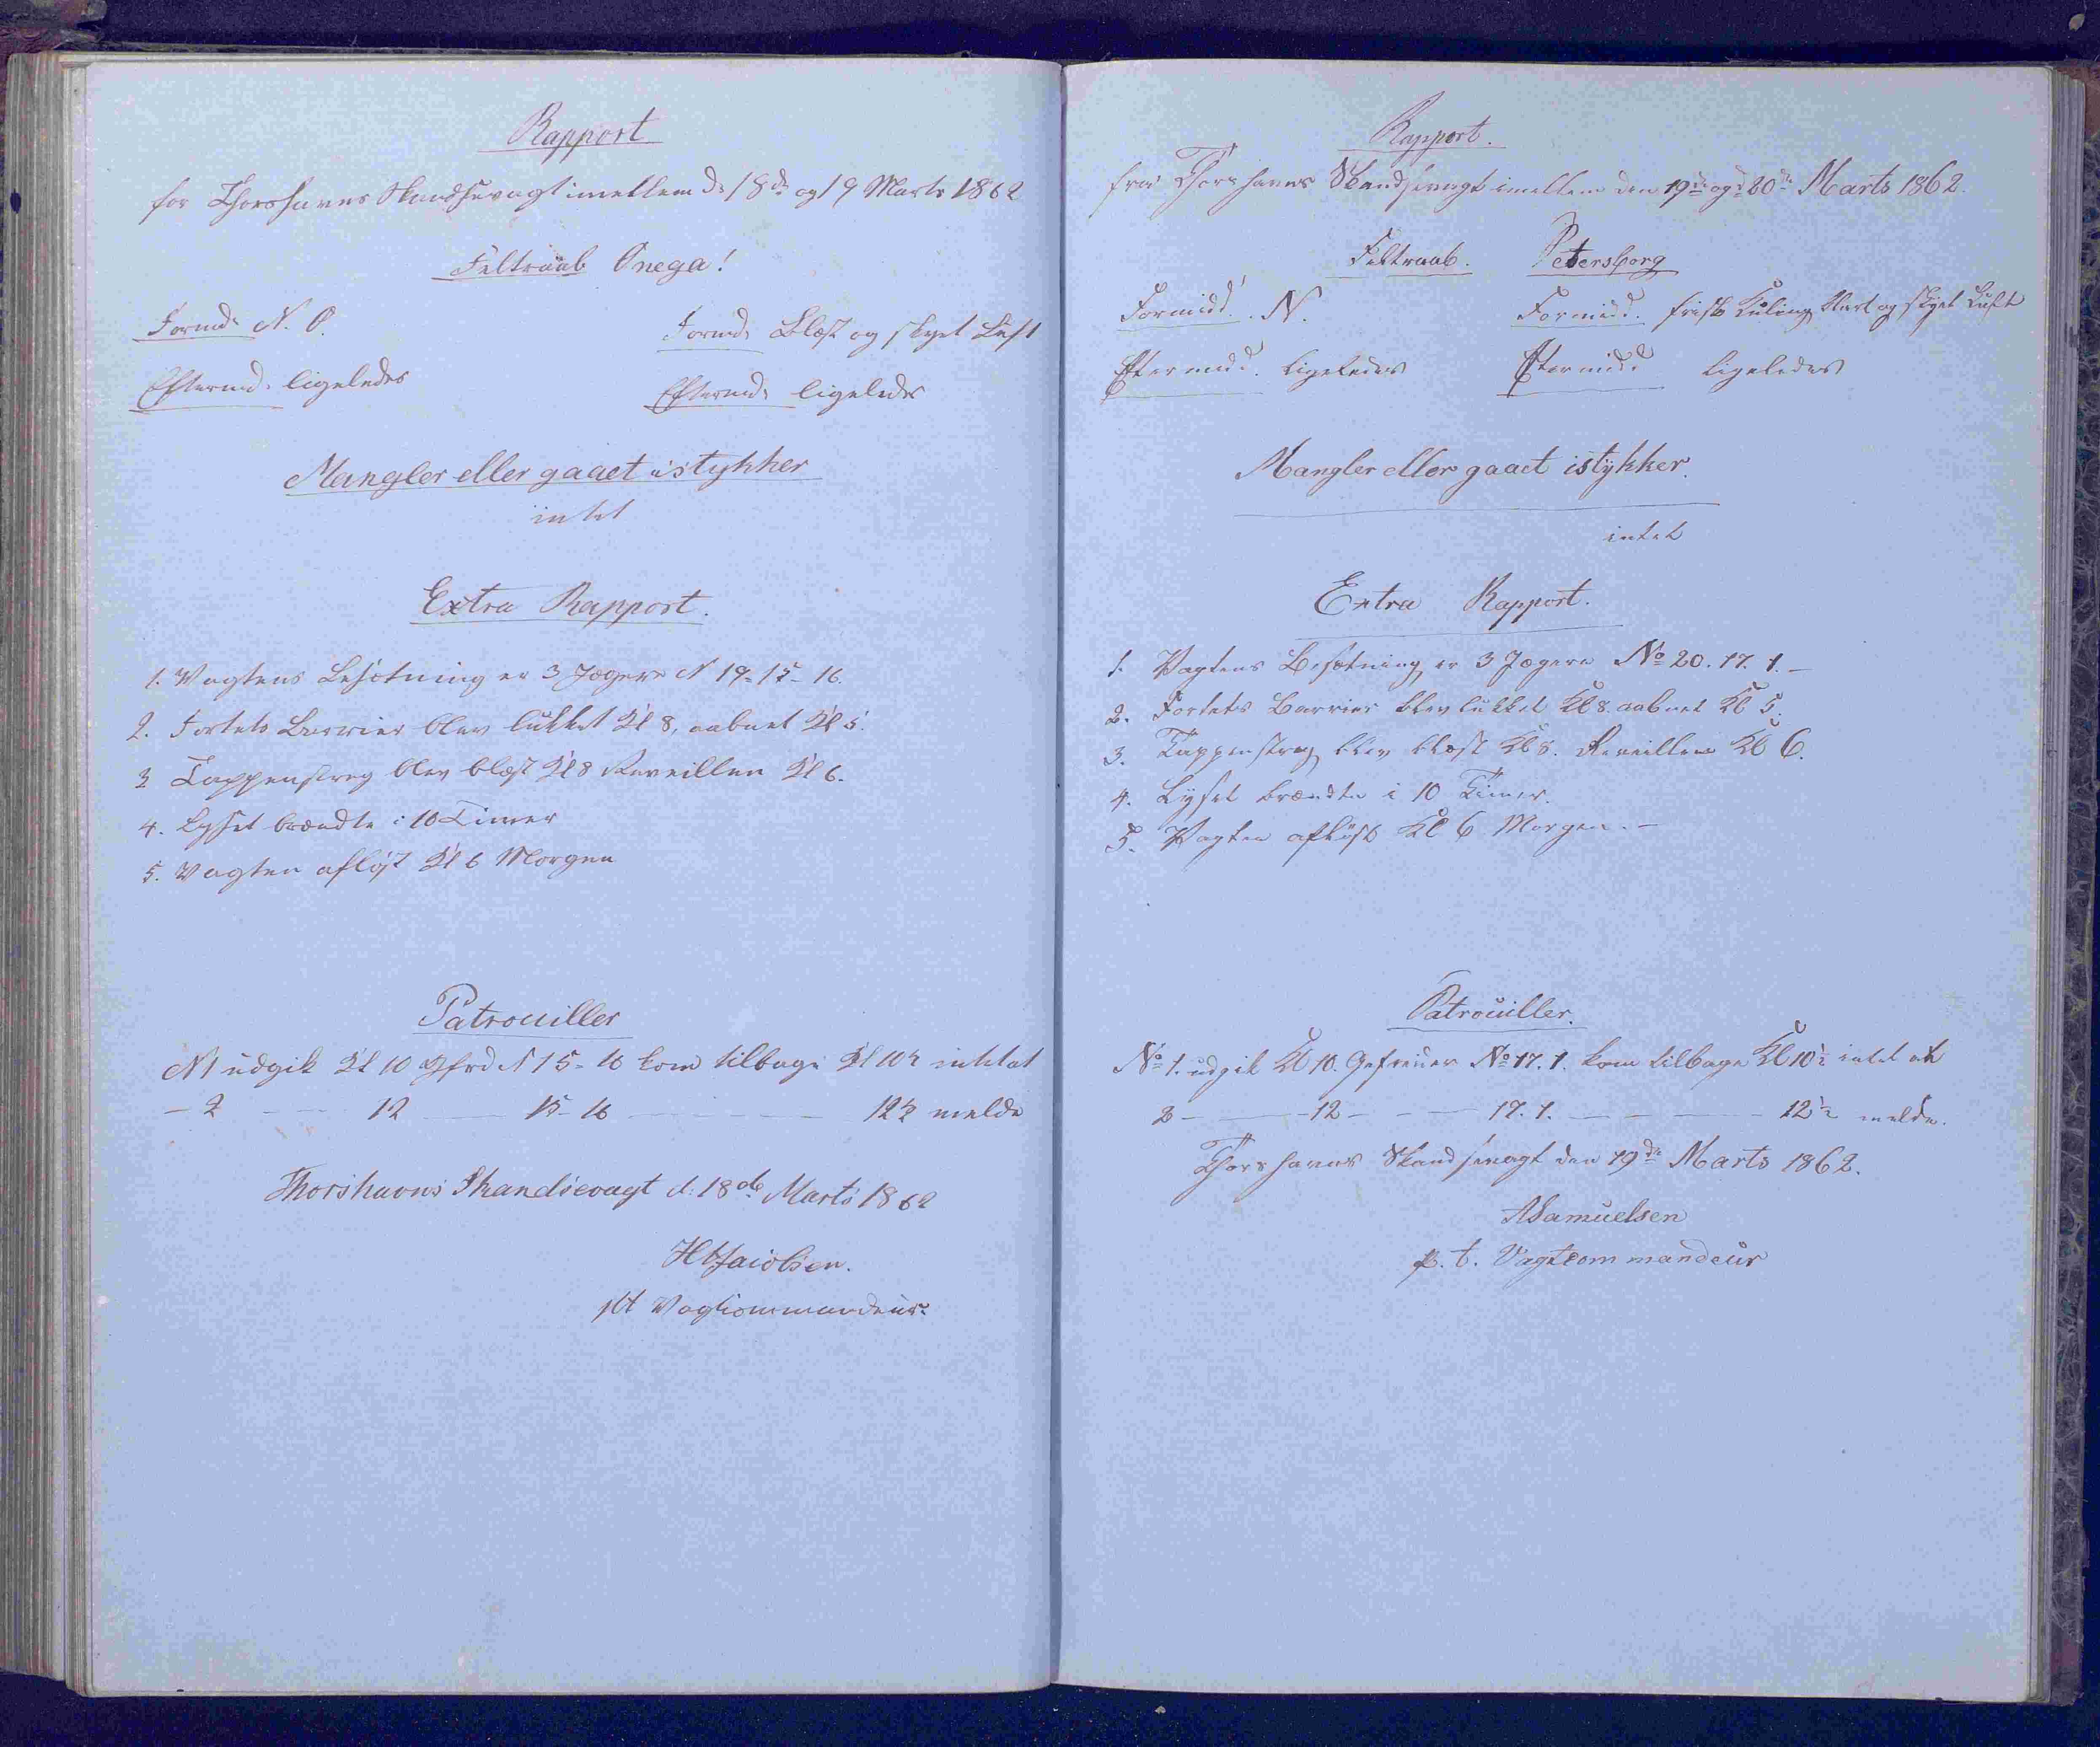 Rapport
for Thorshavns Skandsevagt imellem d: 18de og 19 Marts 1862
Feltraab Onega!
Formd: N. O. Formd: Blæst og skyet Luft
Eftermd: ligeledes Eftermd: ligeledes
Mangler eller gaaet istykker
intet
Extra Rapport.
1. Vagtens Besætning er 3 Jægere N 19-15-16.
2. Fortets Barrier blev lukket Kl 8, aabnet Kl 5.
3 Tappenstreg blev blæst Kl 8 Reveillen Kl 6.
4. Lyset brændte i 10 Timer
5. Vagten afløst Kl 6 Morgen
Patrouiller
N 1 udgik Kl 10 Gfrd N 15-16 kom tilbage Kl 10½ intet at
— 2 — 12 — 15-16 — 12½ melde
Thorshavns Skandsevagt d: 18de Marts 1862
Jacobsen.
pt Vagtcommandeur.
Rapport.
fra Thorshavns Skandsevagt imellem den 19de og d 20de Marts 1862.
Feltraab. Petersborg
Formidd. N. Formidd. frisk Kuling klart og skyet Luft
Eftermidd. ligeledes Eftermidd ligeledes
Mangler eller gaaet istykker.
intet
Extra Rapport.
1. Vagtens Besætning er 3 Jægere No 20. 17. 1. —
2. Fortets Barrier blev lukket Kl 8. aabnet Kl 5.
3. Tappenstreg blev blæst Kl 8. Reveillen Kl 6.
4. Lyset brændte i 10 Timer.
5. Vagten afløst Kl 6 Morgen. —
Patrouiller.
No 1. udgik Kl 10. Gefreider No 17. 1. kom tilbage Kl 10½ intet at
2 — 12 — 17. 1. — 12½ melde.
Thorshavns Skandsevagt den 19de Marts 1862.
ASamuelsen
p. t. Vagtcommandeur